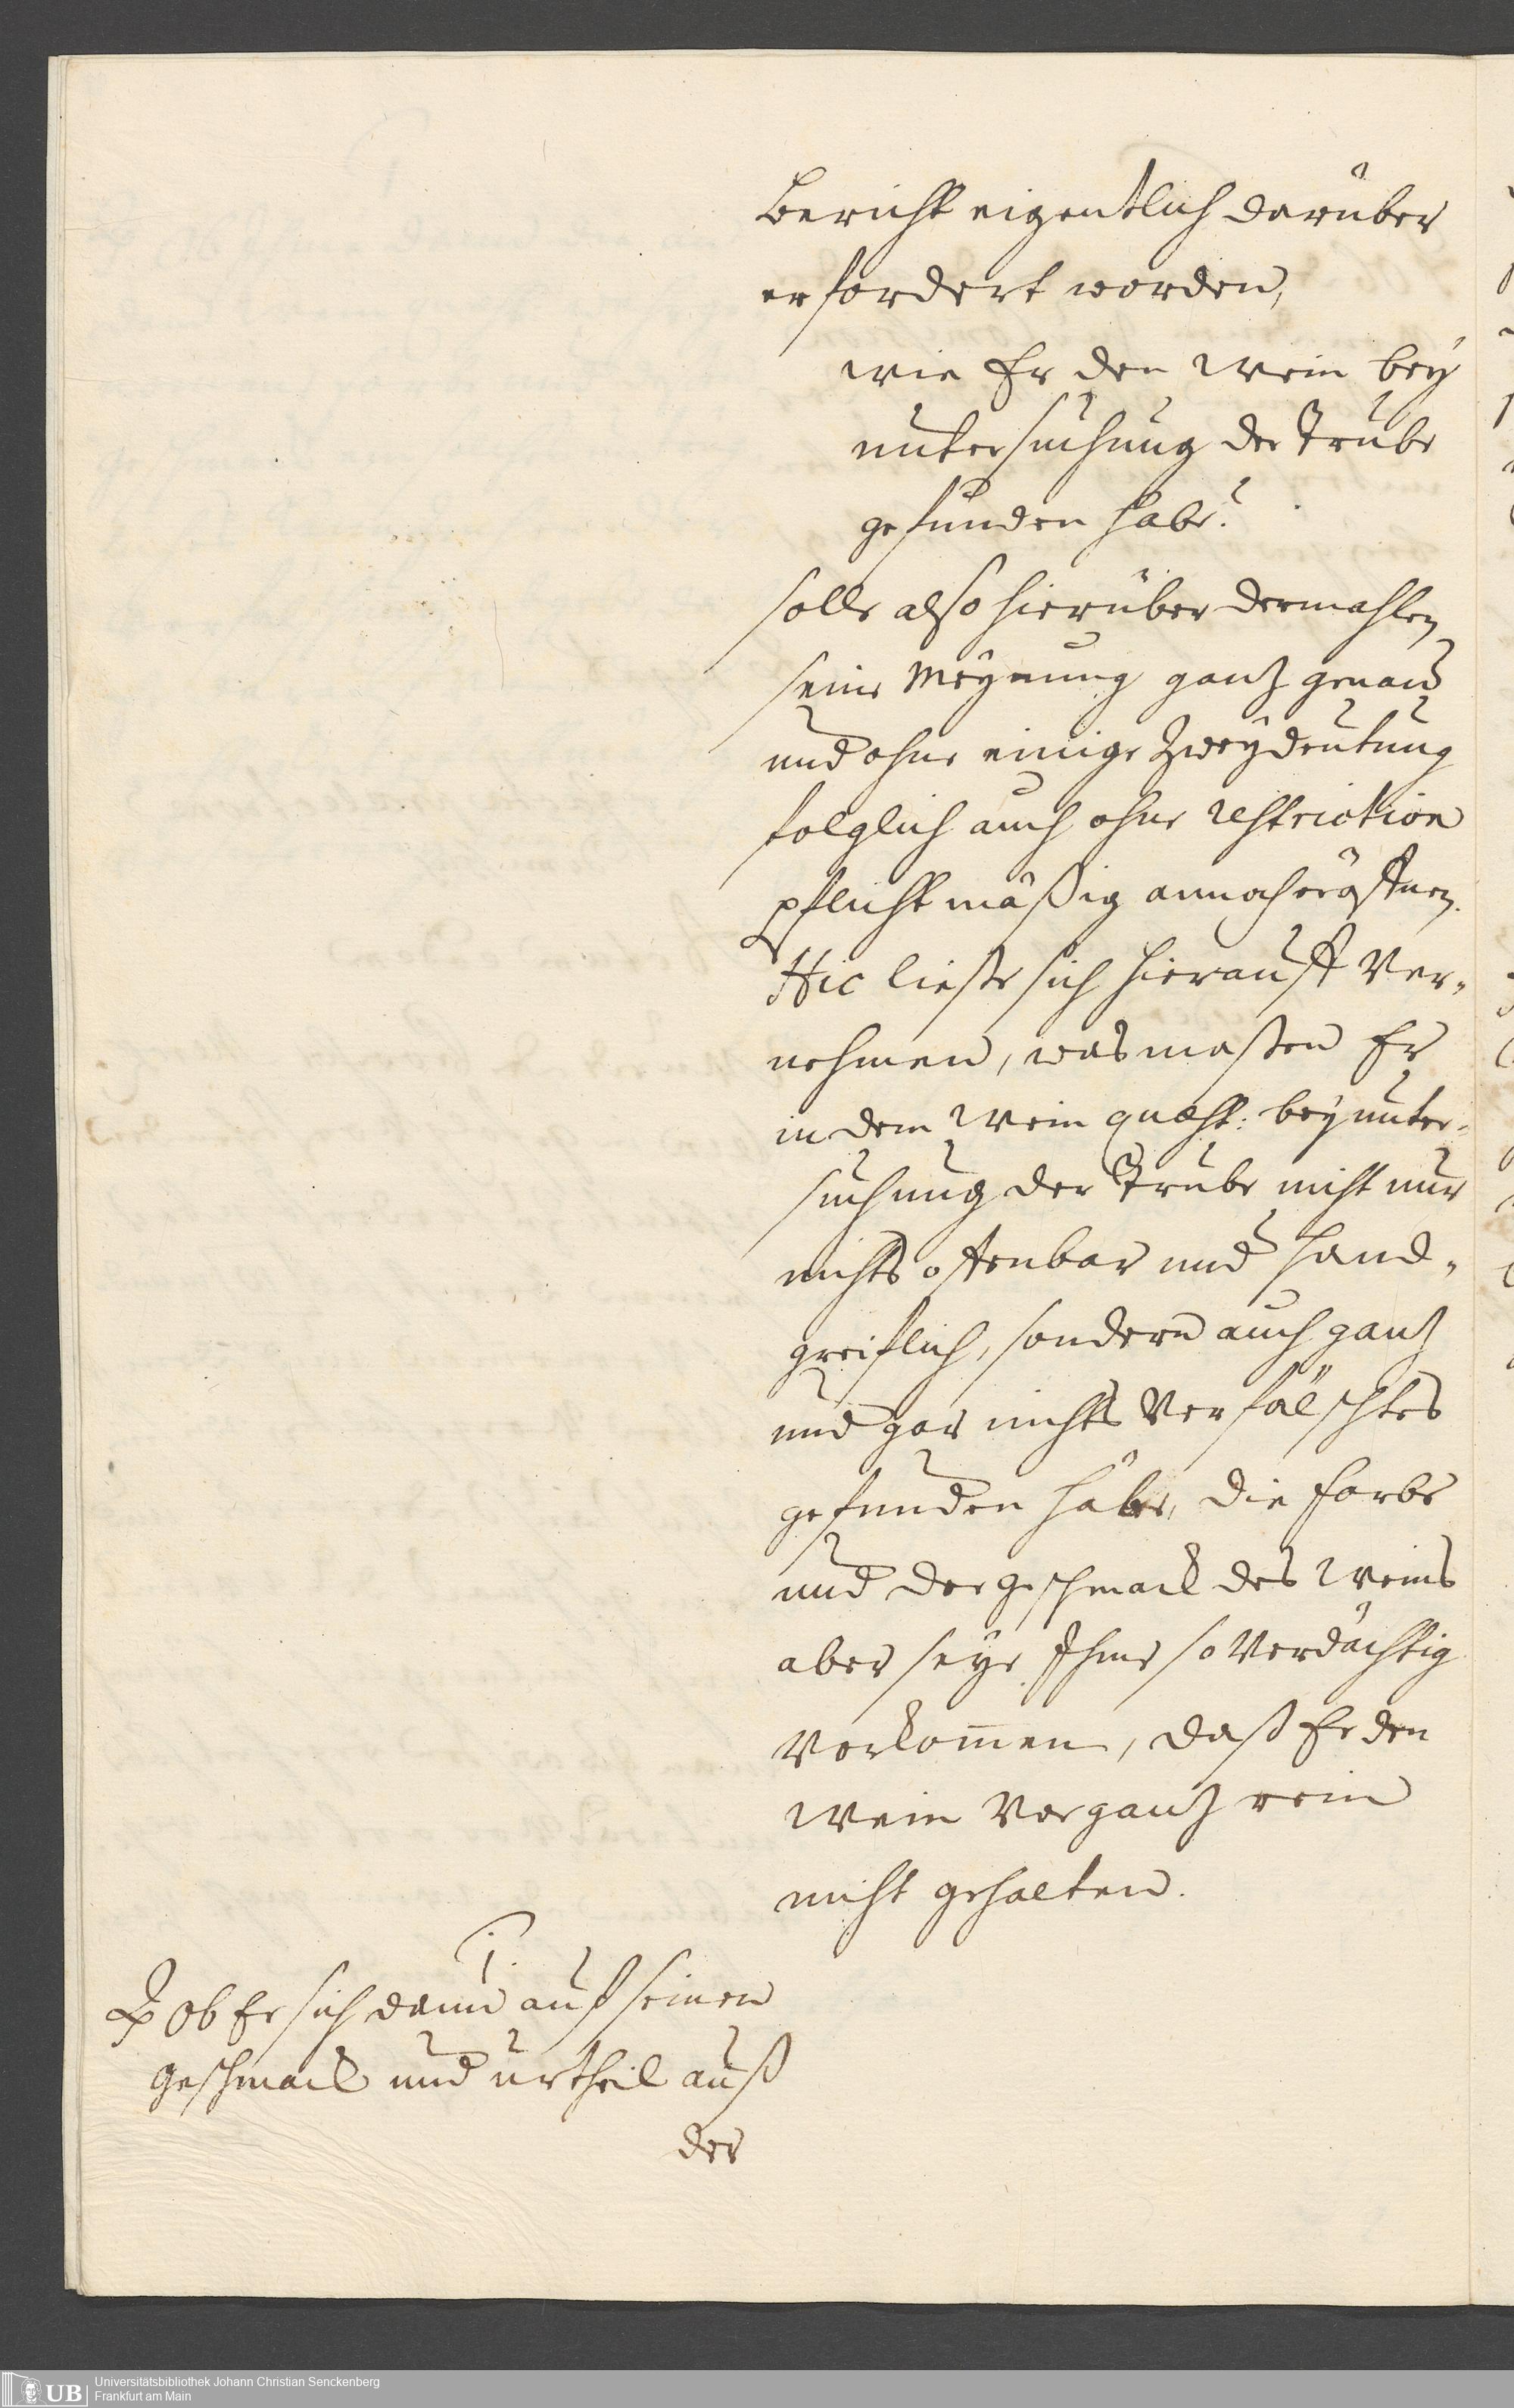 Bericht eigentlich darüber
erfordert worden,
wie Er den Wein bey
untersuchung der Trübe
gefunden habe?
solle also hierüber dermahlen
seine Meynung gantz genau
und ohne einige Zweydeutung
folglich auch ohne restriction
pflichtmäßig annoch eröffnen.
Hic ließe sich hierauff ver„
nehmen, was maßen Er
in dem Wein quaest: bey unter„
suchung der Trübe nicht nur
nichts offenbar und hand„
greiflich, sondern auch gantz
und gar nichts verfälschtes
gefunden habe, die farbe
und der geschmack des Weins
aber seye Ihme so verdächtig
vorkom̄en, daß Er den
Wein vor gantz rein
nicht gehalten.
7.
Q ob Er sich dann auf seinen
geschmack und urtheil auß
der
Universitätsbibliothek Johann Christian Senckenberg
Frankfurt am Main
UB